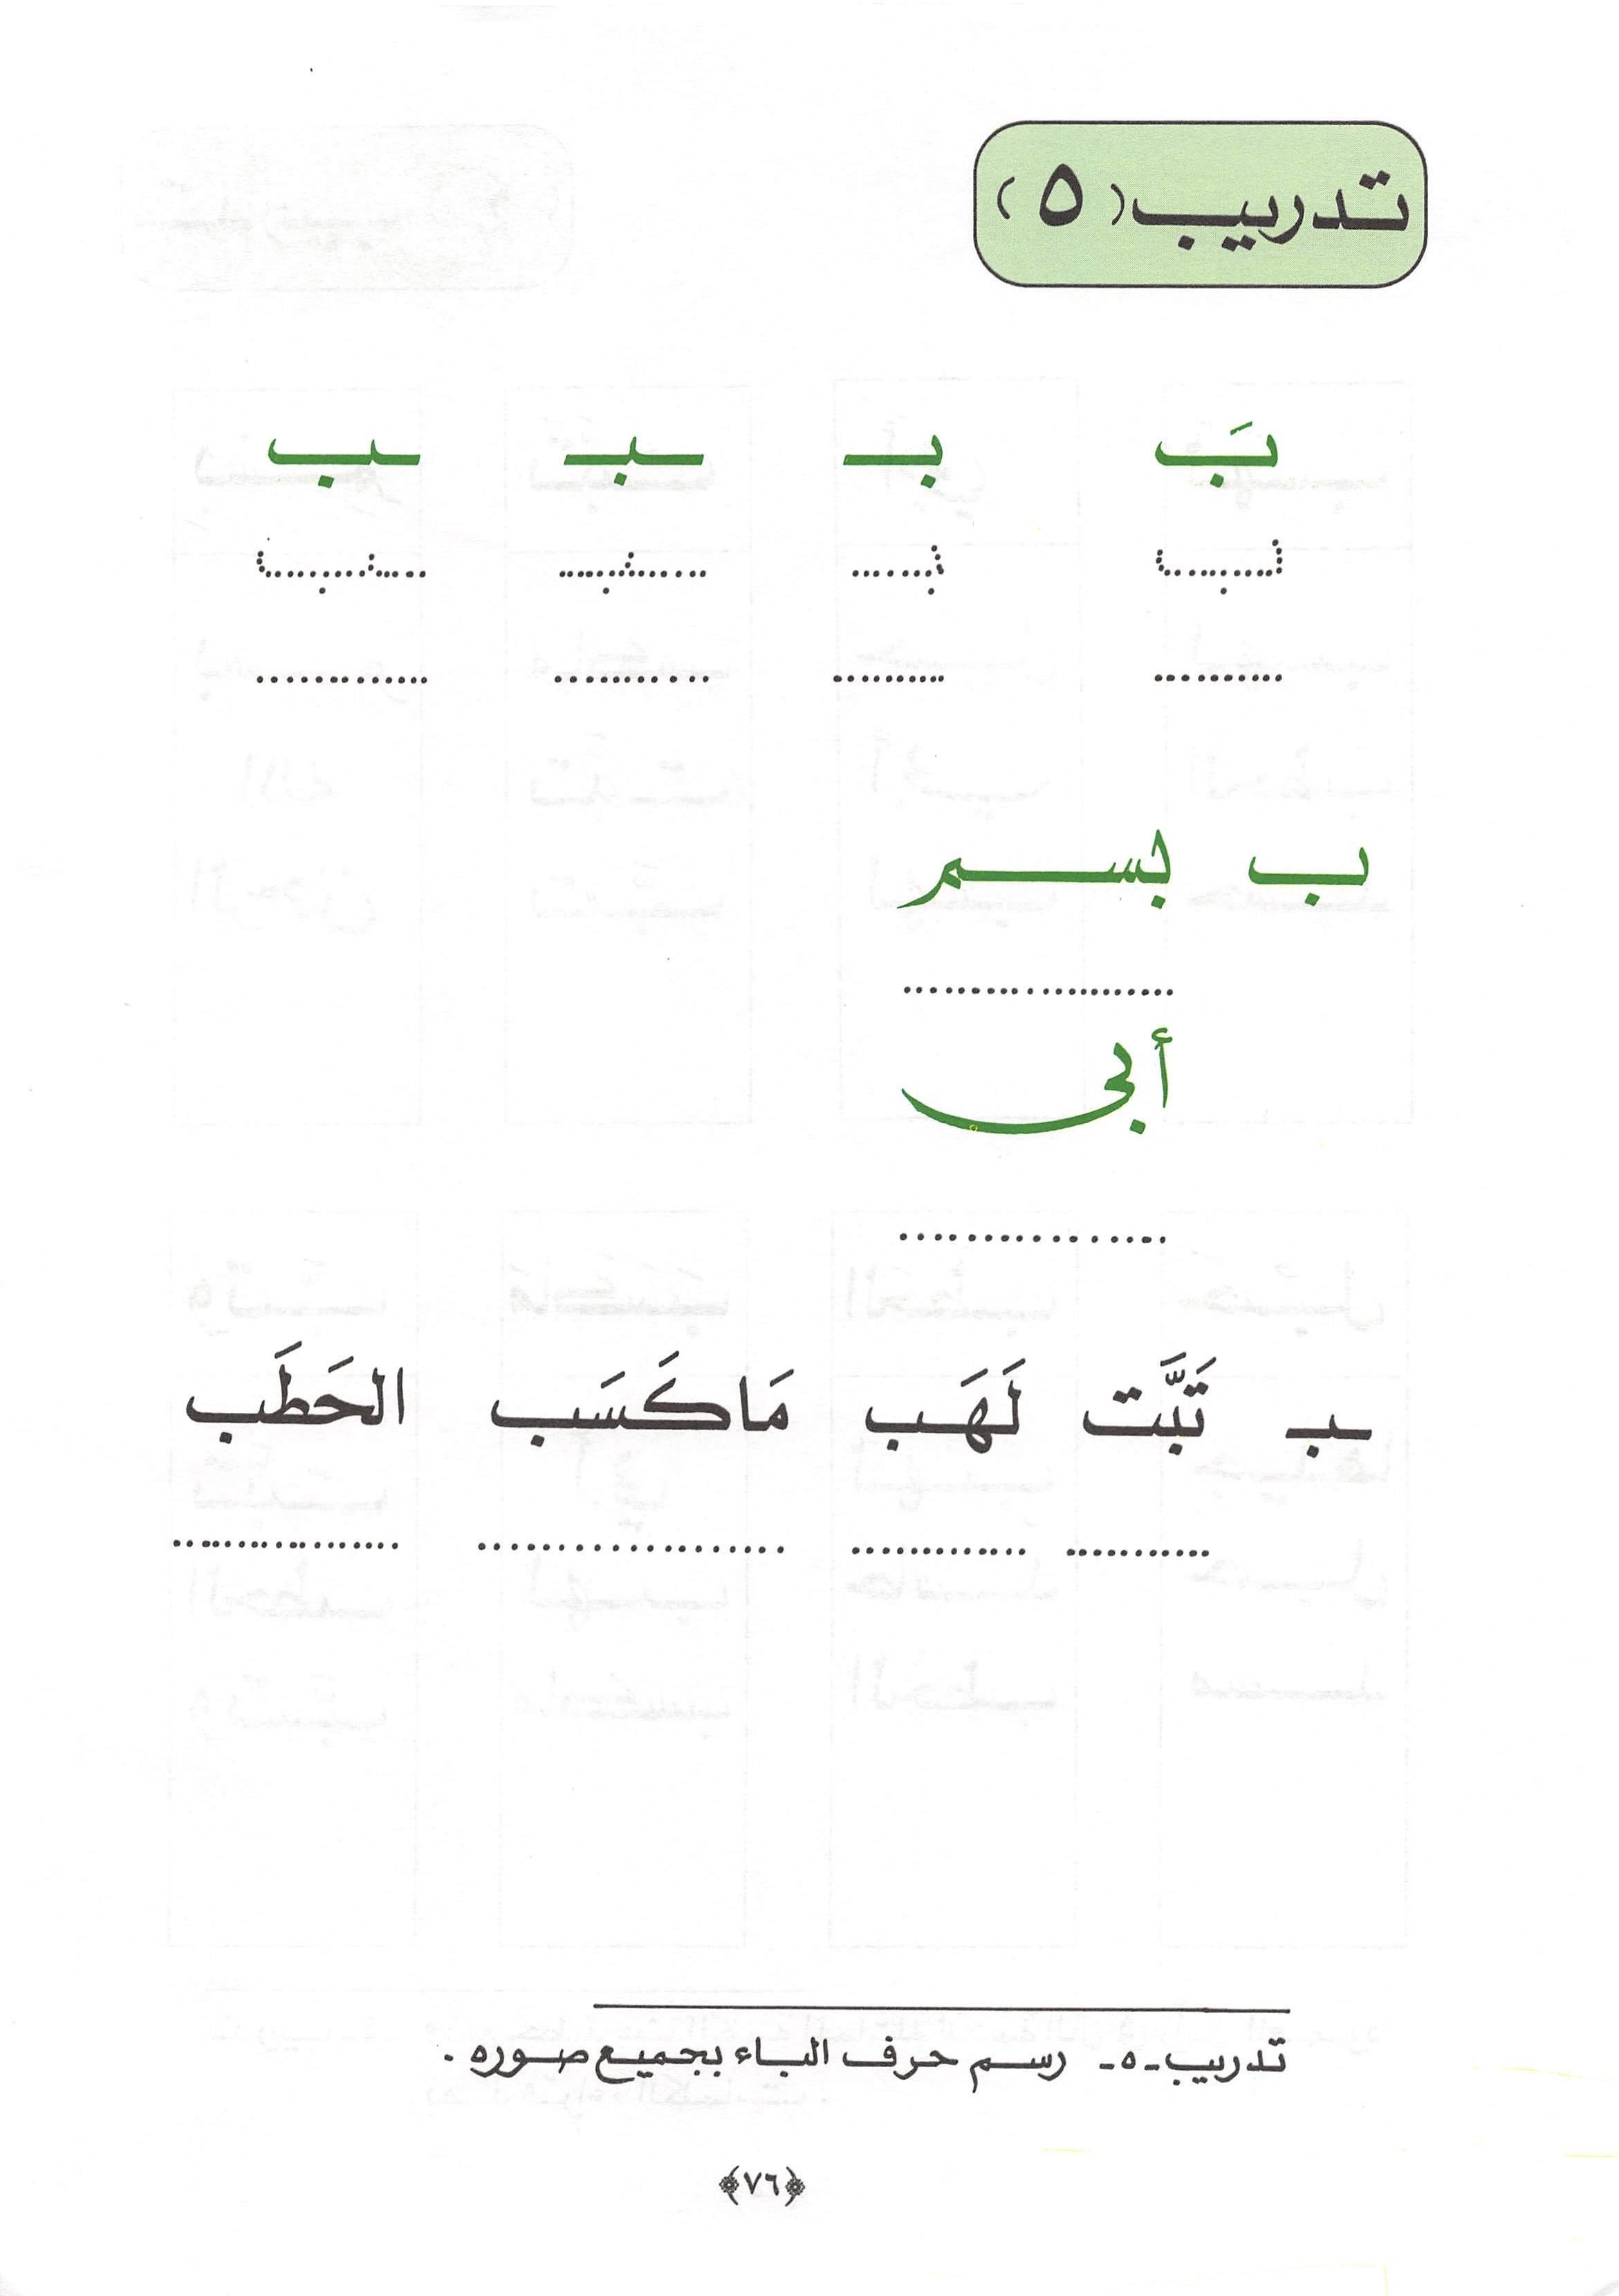 تدريب (٥)
بَ بـ ـبـ ـب
ب بسم
أبي
ـبـ تَبَّت لَهَب مَاكَسَب الحَطَب
تدريب -٥- رسم حرف الباء بجميع صوره .
﴿٧٦﴾